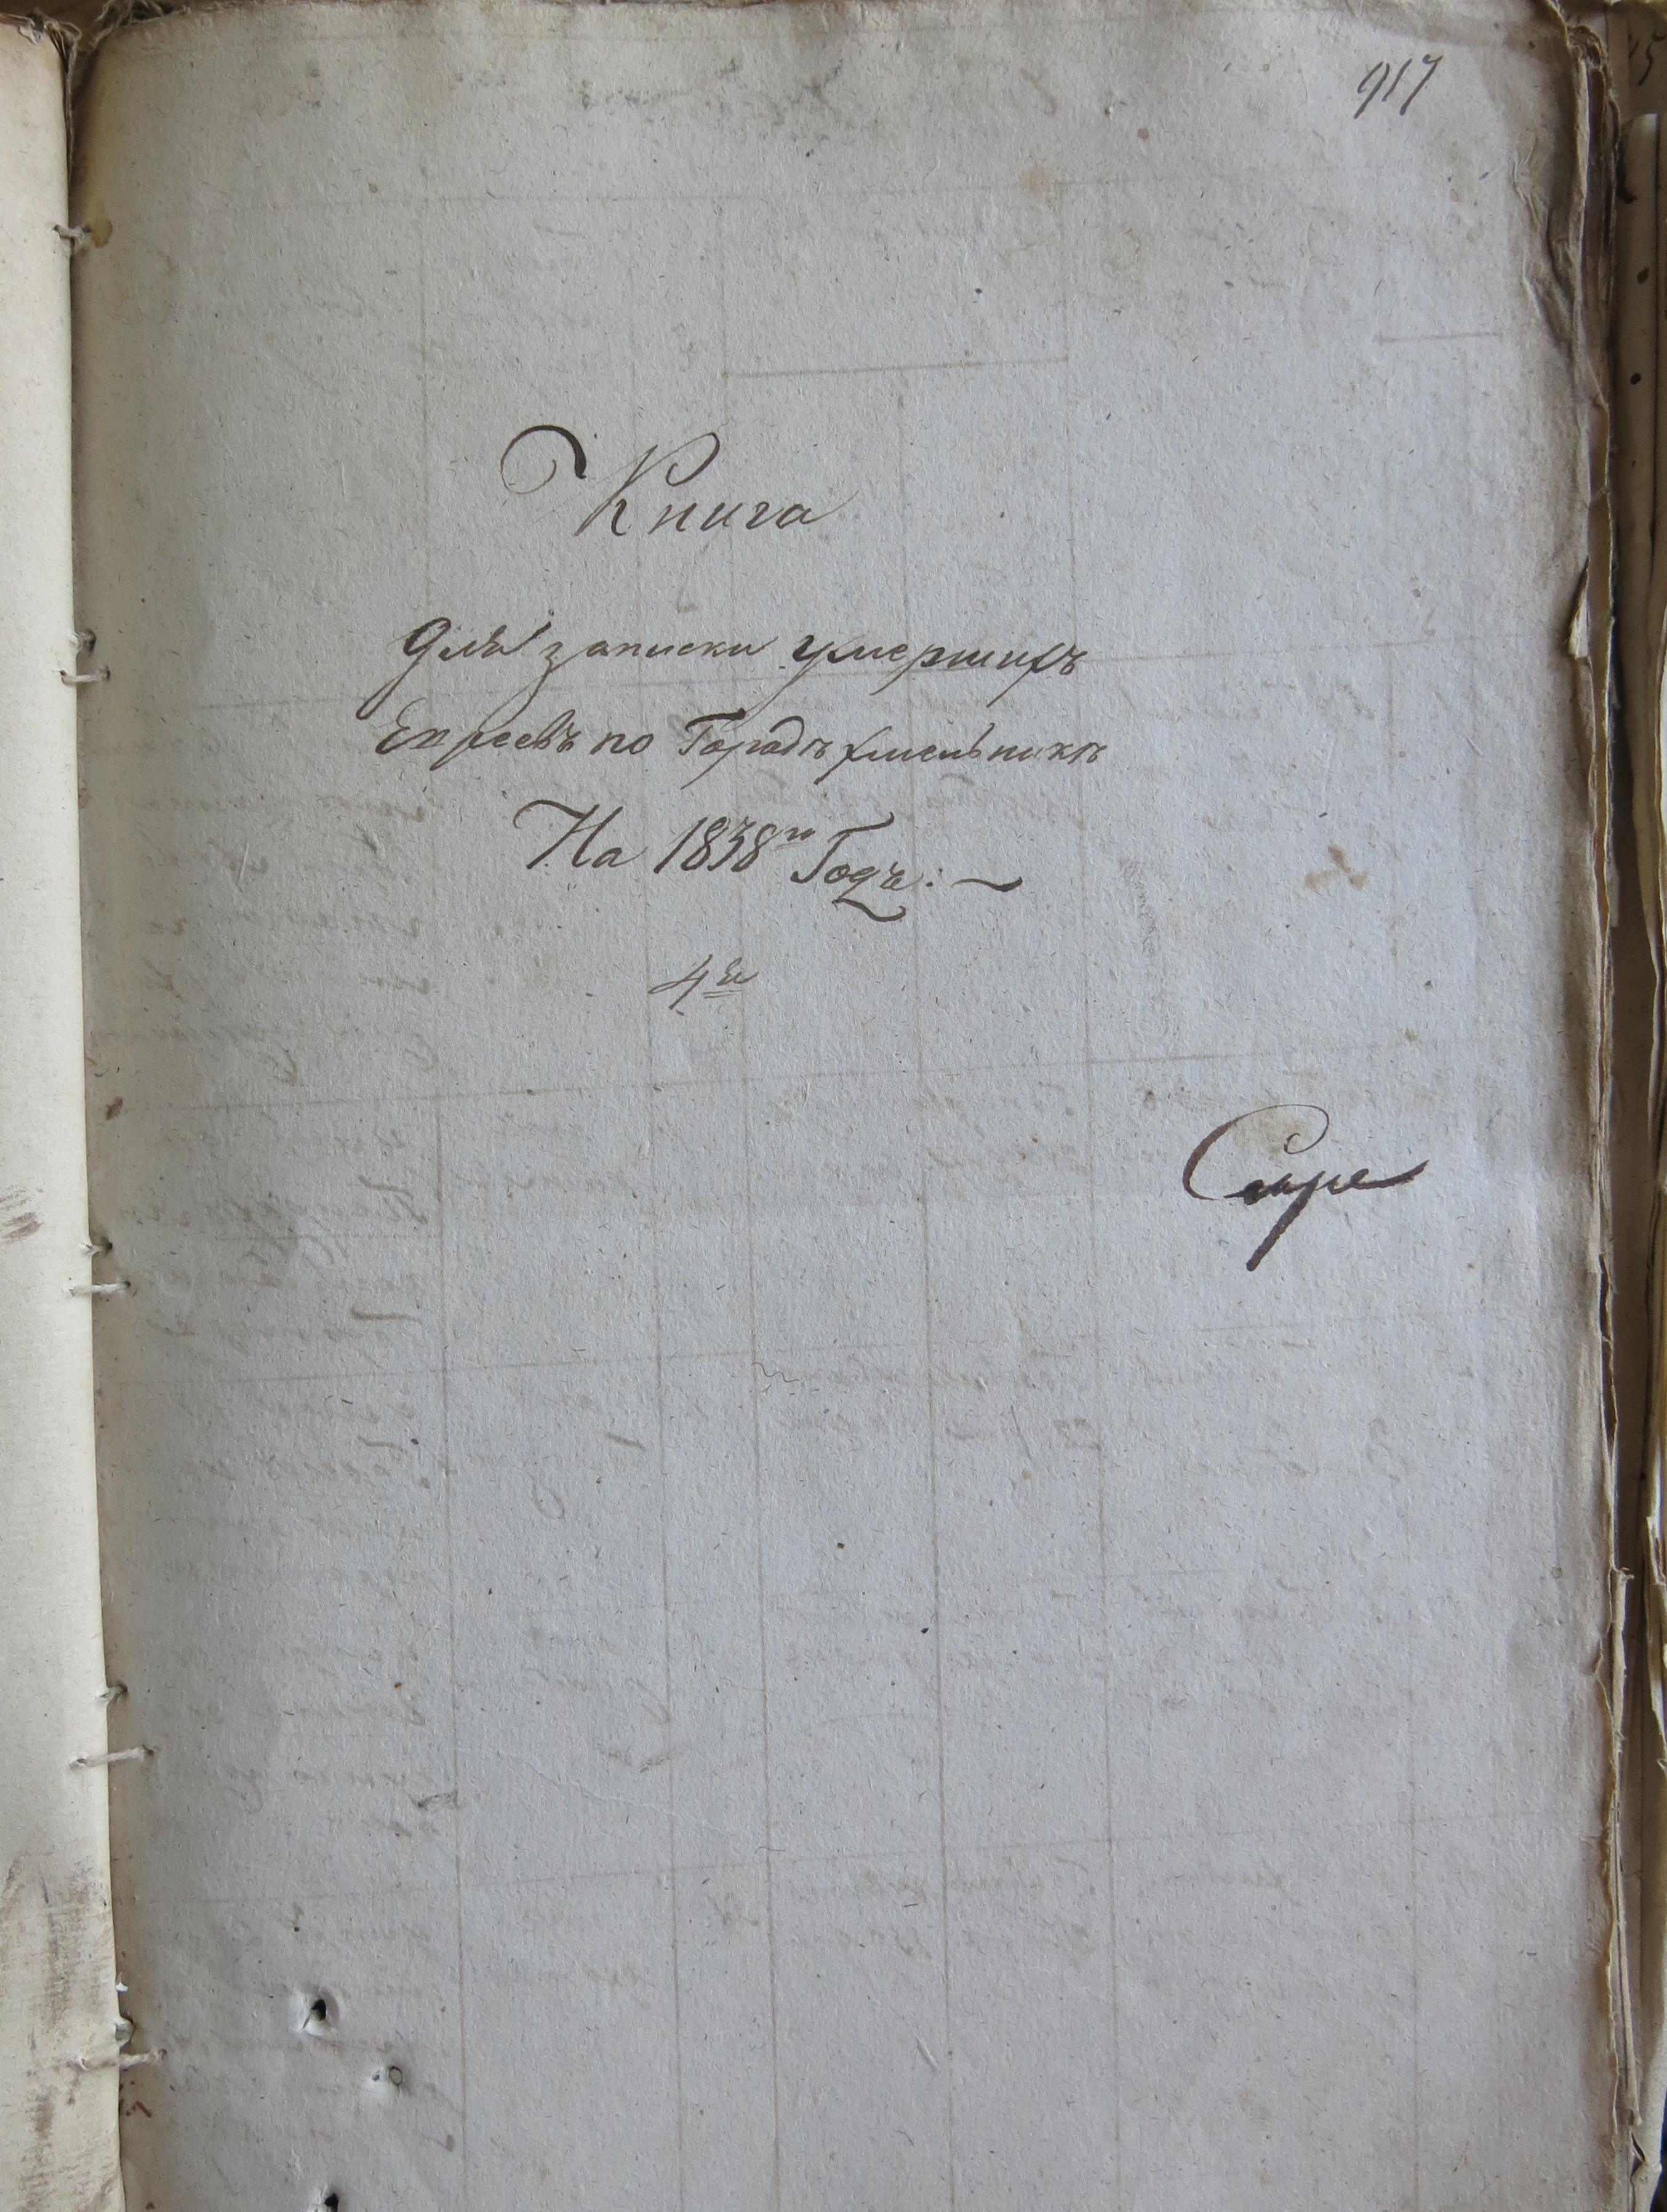 917
Книга
Для записки умершихъ
Евреевъ по Городѣ хмельникѣ
На 1838й Годъ:
4я